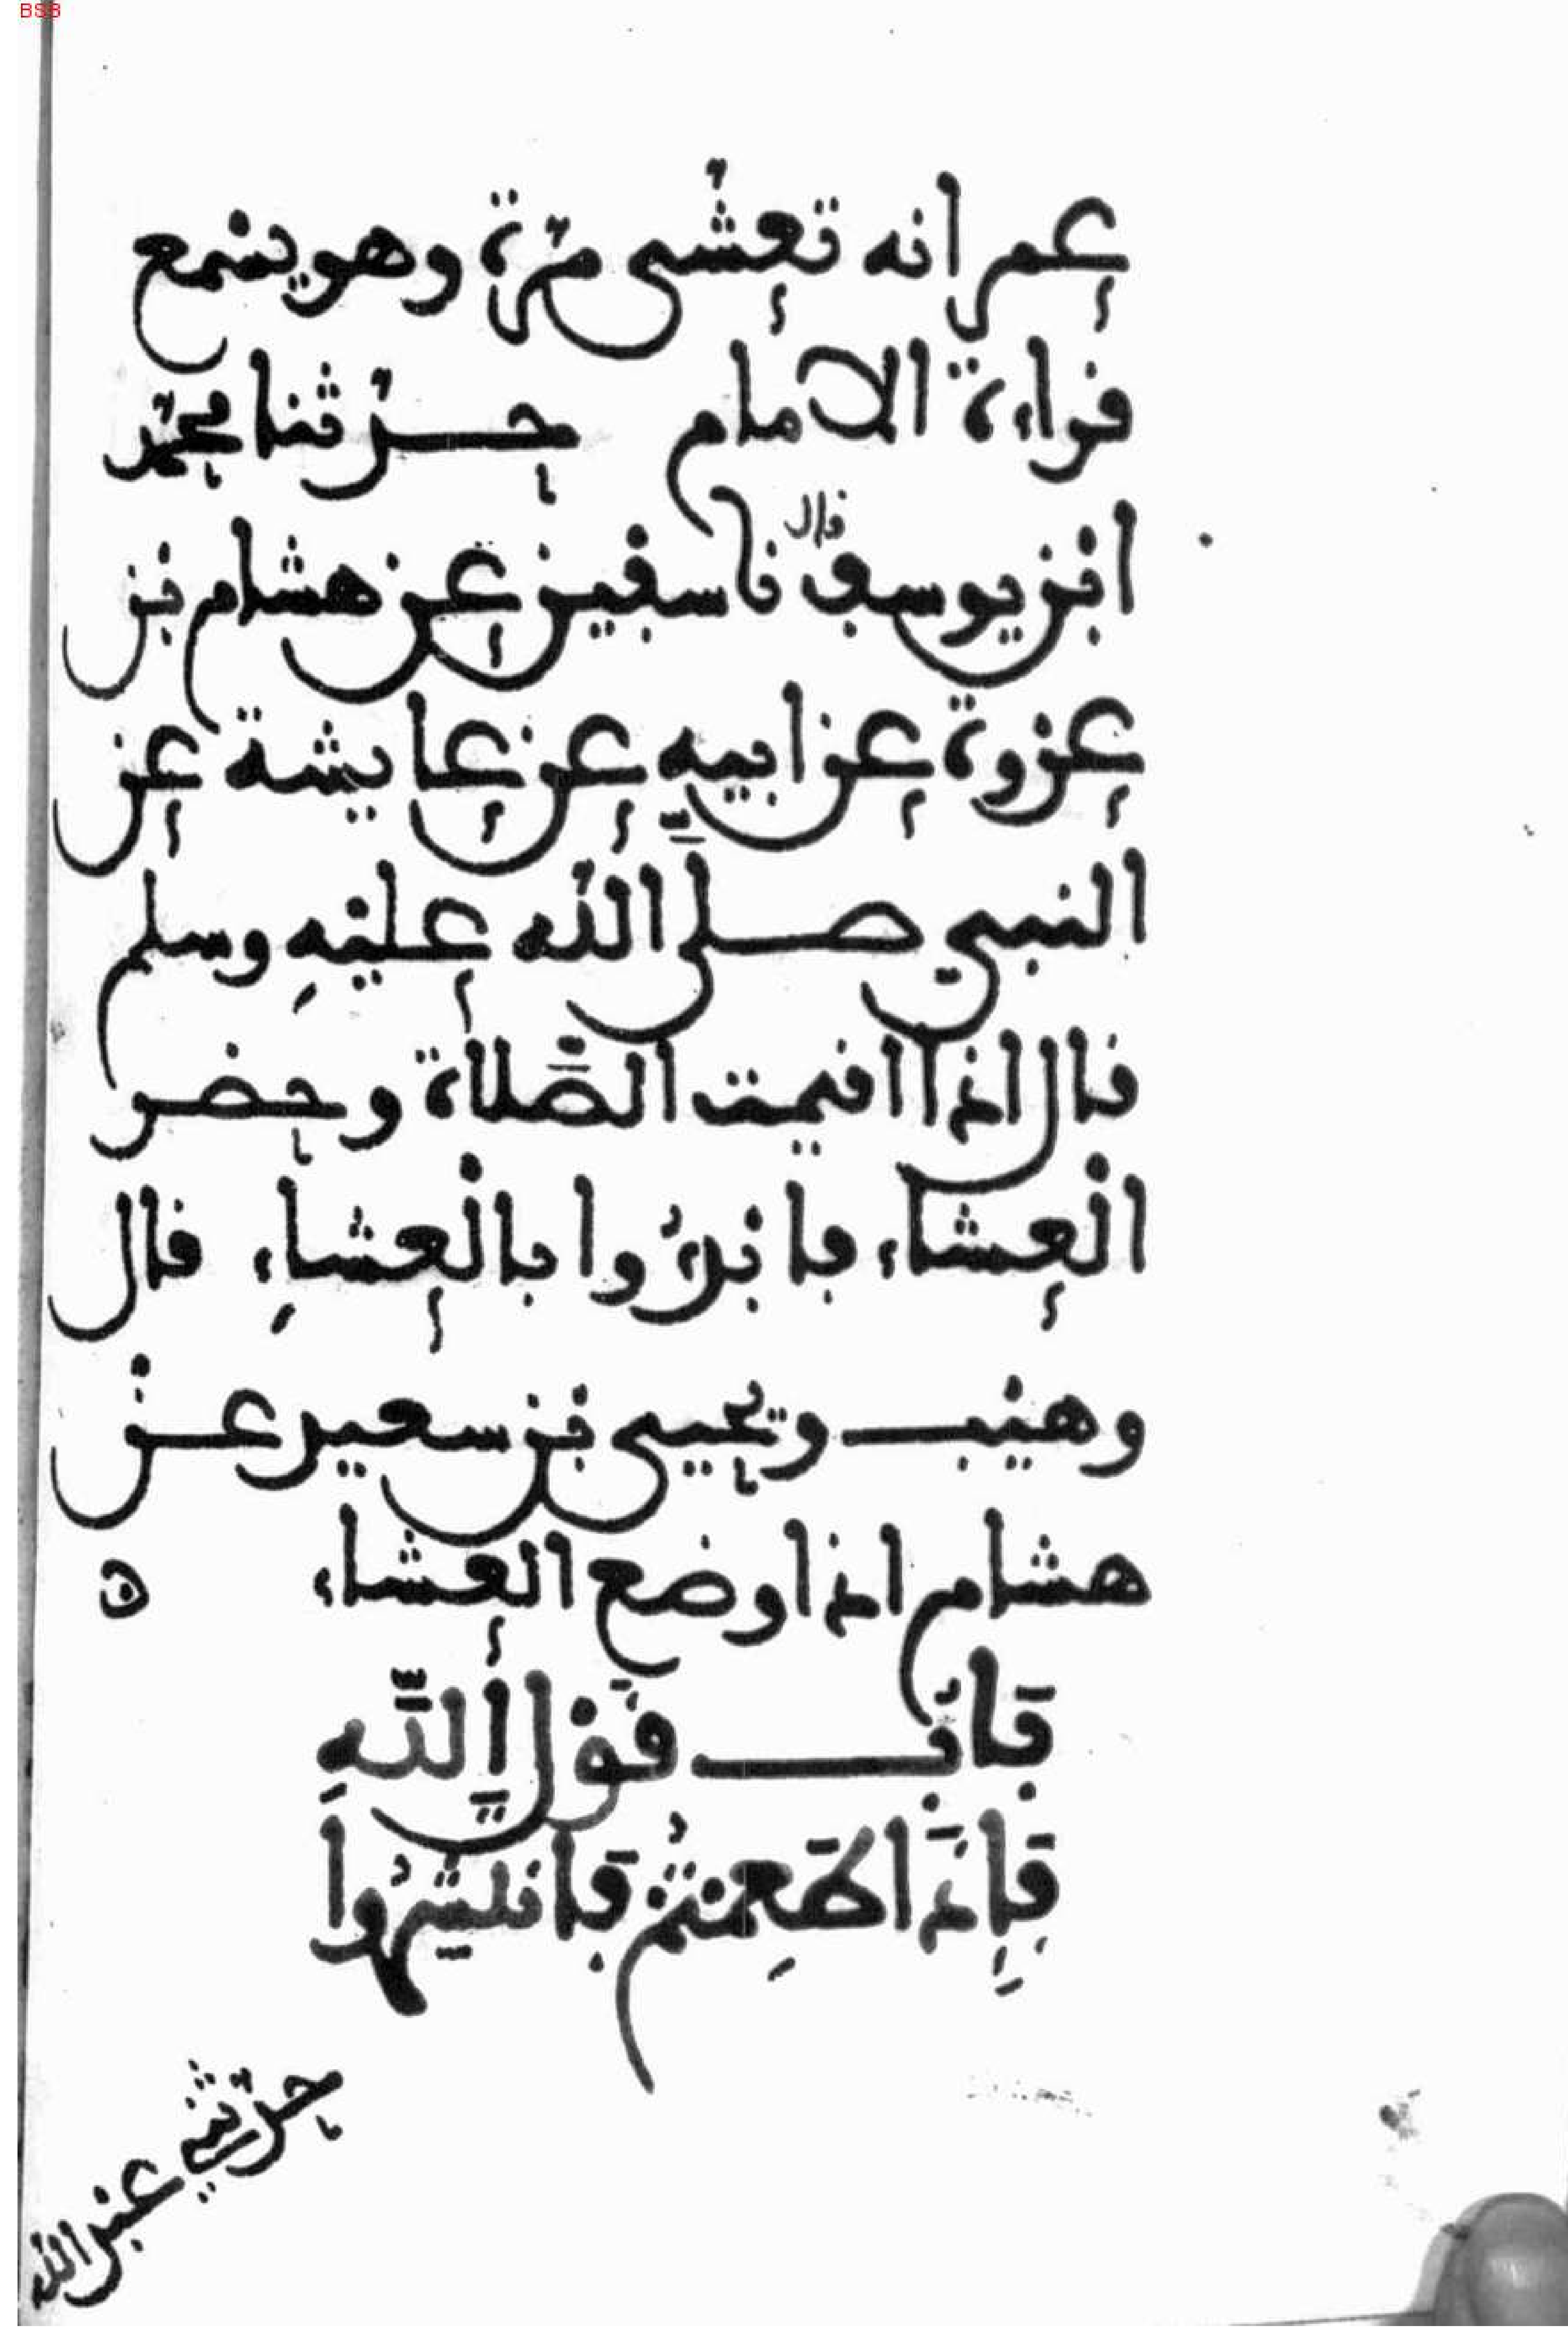 BSB
عمر انه تعشى مرة وهو يسمع
قراءة الامام حدثنا محمد
ابن يوسف قال نا سفين عن هشام بن
عروة عن ابيه عن عايشة عن
النبي صلى الله عليه وسلم
قال اذا اقيمت الصلاة وحضر
العشاء فابدءوا بالعشاء قال
وهيب ويحيى بن سعيد عن
هشام اذا وضع العشاء ه
باب قول الله
فإذا طعمتم فانتشروا
حدثني عبد الله